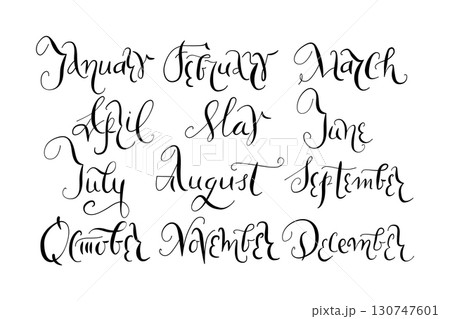 January February March
April May June
July August September
October November December
PIXTA
pixta.jp - 130747601